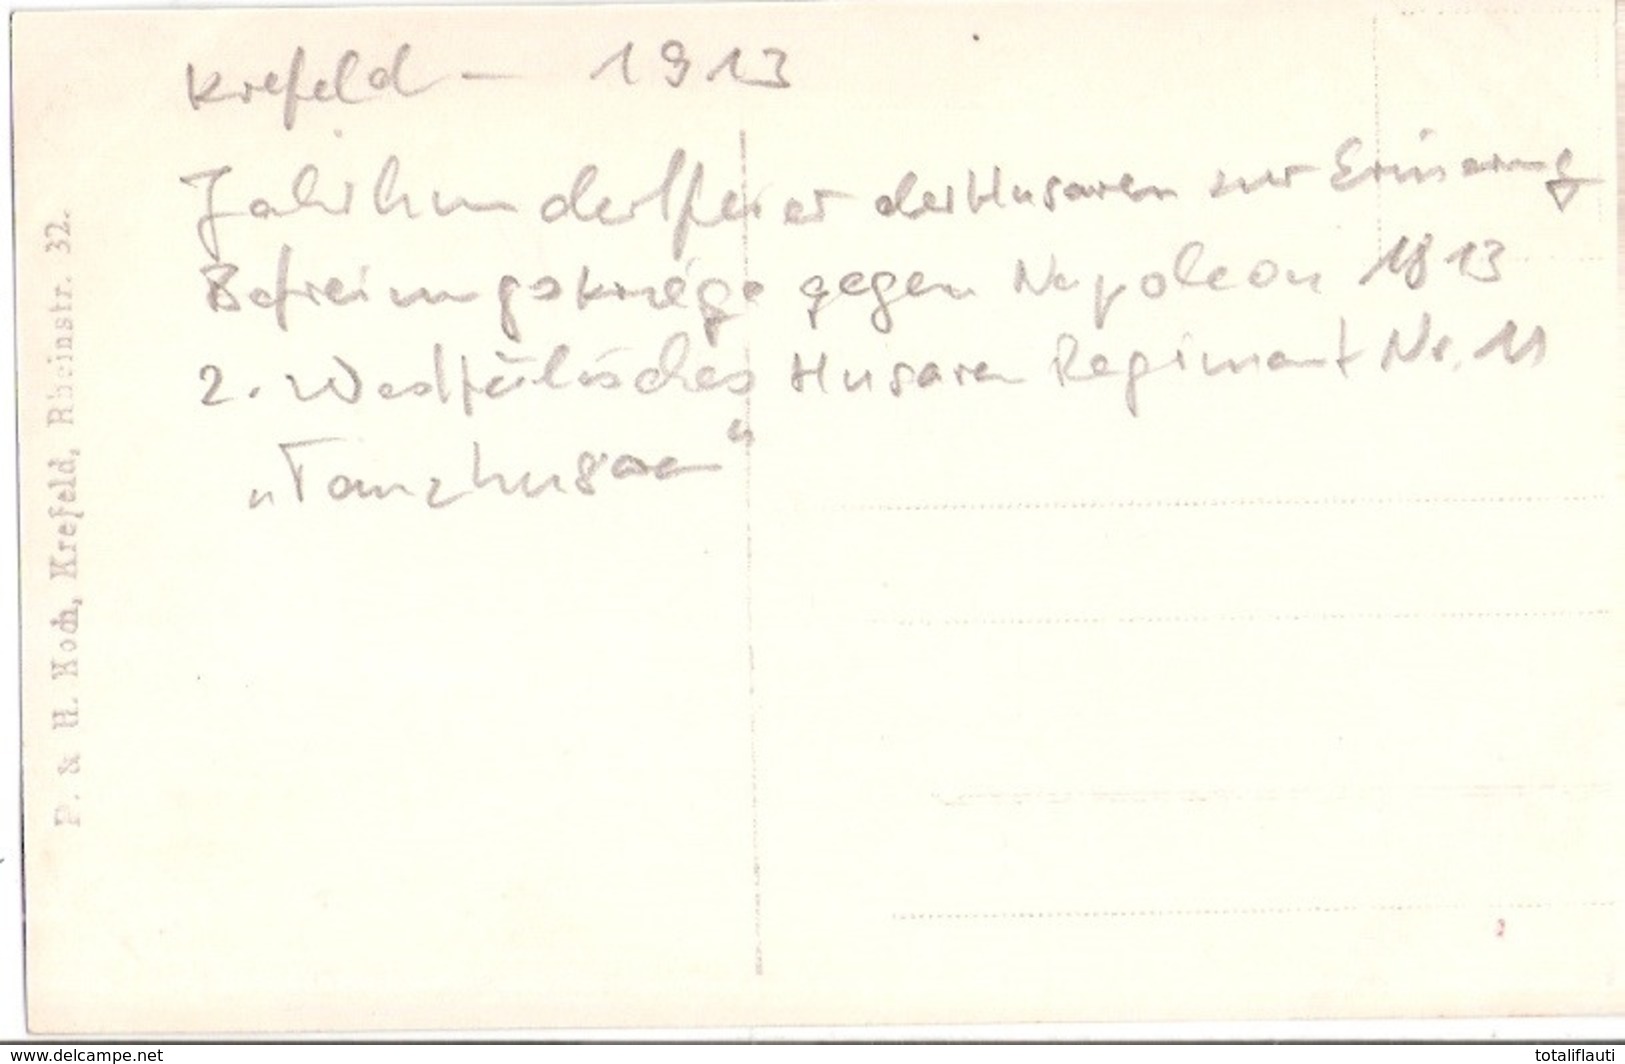 Krefeld – 1913
Jahrhundertfeier der Husaren zur Erinerung
Befreiungskriege gegen Napoleon 1813
2. Westfälisches Husaren Regiment Nr. 11
„Tanzhusaren“
P. & H. Koch, Krefeld, Rheinstr. 32.
www.delcampe.net
totaliflauti